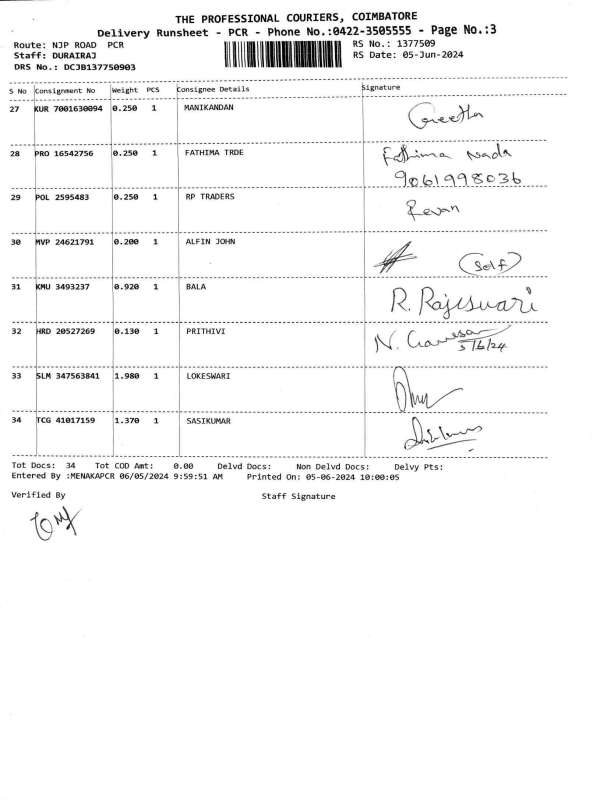 THE PROFESSIONAL COURIERS, COIMBATORE
Delivery Runsheet - PCR - Phone No.:0422-3505555 - Page No.:3
Route: NJP ROAD PCR RS No.: 1377509
Staff: DURAIRAJ RS Date: 05-Jun-2024
DRS No.: DCJB137750903
S No Consignment No Weight PCS Consignee Details Signature
27 KUR 7001630094 0.250 1 MANIKANDAN Geetha
28 PRO 16542756 0.250 1 FATHIMA TRDE Fathima Nada
9061998036
29 POL 2595483 0.250 1 RP TRADERS Revan
30 MVP 24621791 0.200 1 ALFIN JOHN (self)
31 KMU 3493237 0.920 1 BALA R. Rajesuvari
32 HRD 20527269 0.130 1 PRITHIVI N. Ganesan
5/6/24
33 SLM 347563841 1.980 1 LOKESWARI
34 TCG 41017159 1.370 1 SASIKUMAR
Tot Docs: 34 Tot COD Amt: 0.00 Delvd Docs: Non Delvd Docs: Delvy Pts:
Entered By :MENAKAPCR 06/05/2024 9:59:51 AM Printed On: 05-06-2024 10:00:05
Verified By Staff Signature